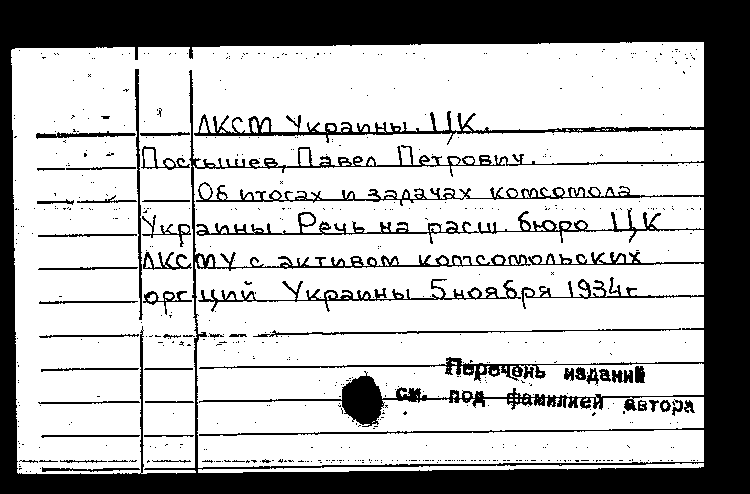 ЛКСМ Украины. ЦК.
Постышев, Павел Петрович.
Об итогах и задачах комсомола
Украины. Речь на расш. бюро ЦК
ЛКСМУ с активом комсомольских
орг-ций Украины 5 ноября 1934 г
Перечень изданий
см. под фамилией автора